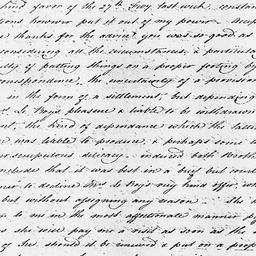 kind favor of the 27th July last week. constan
tions however put it out of my power. Accep
thanks for the advice you was so good as
considering all the circumstances, & particula
lly if putting things on a proper footing by
correspondence, the uncertainty of a provision
in the form of a settlement, but depending
Le Boy's pleasure & liable to be withdrawn
the kind of dependance which the latte
was liable to produce, & perhaps some
scrupulous delicacy induced both Broth
conclude that it was best in a brief but cour
ner to decline Mrs. Le Boy's very kind offer, wh
but without assigning any reason — She
to me in the most affectionate manner
she will pay me a visit as soon as the
of Jas. should it be renewed & put on a prop